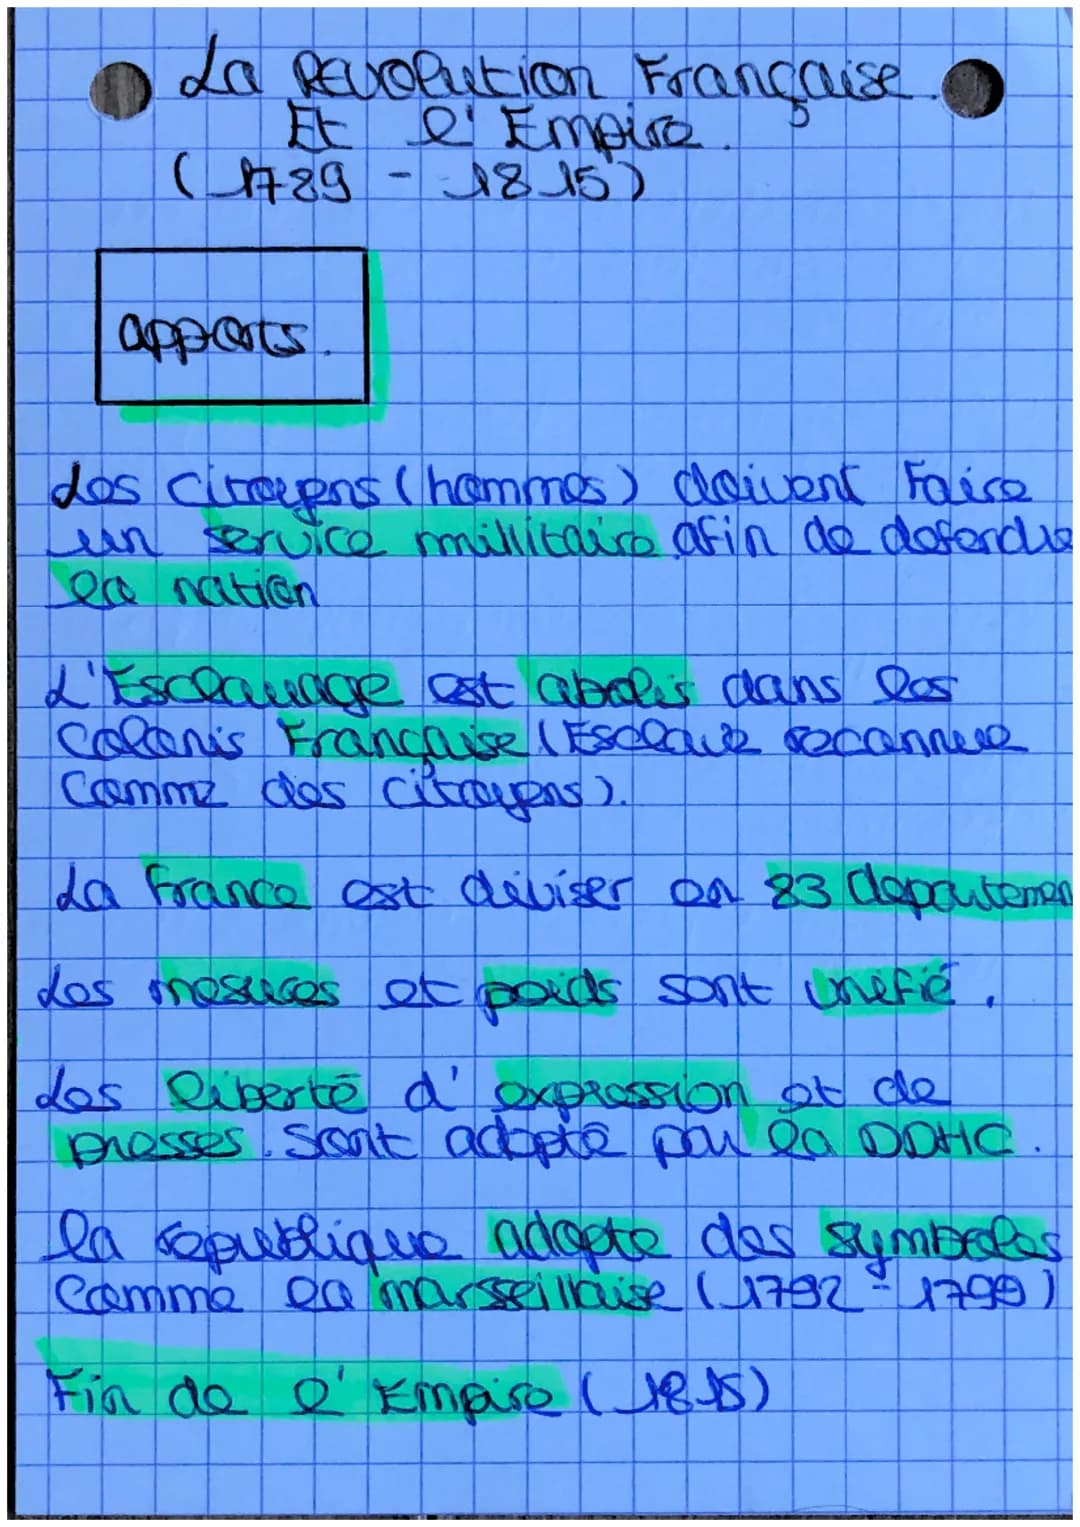 La Révolution Française.
Et l'Empire.
(1789 - 1815)
apports.
Les citoyens (hommes) doivent faire
un service millitaire afin de defendre
la nation
L'Esclavage est abolis dans les
Colonis Française (Esclave reconnue
Comme des citoyens).
La France est diviser en 83 departemen
Les mesures et poids sont unefié.
Les liberté d'expression et de
presses. Sont adopté par la DDHC.
la republique adopte des symboles
Comme la marsseillaise (1792 - 1799)
Fin de l'Empire (1815)